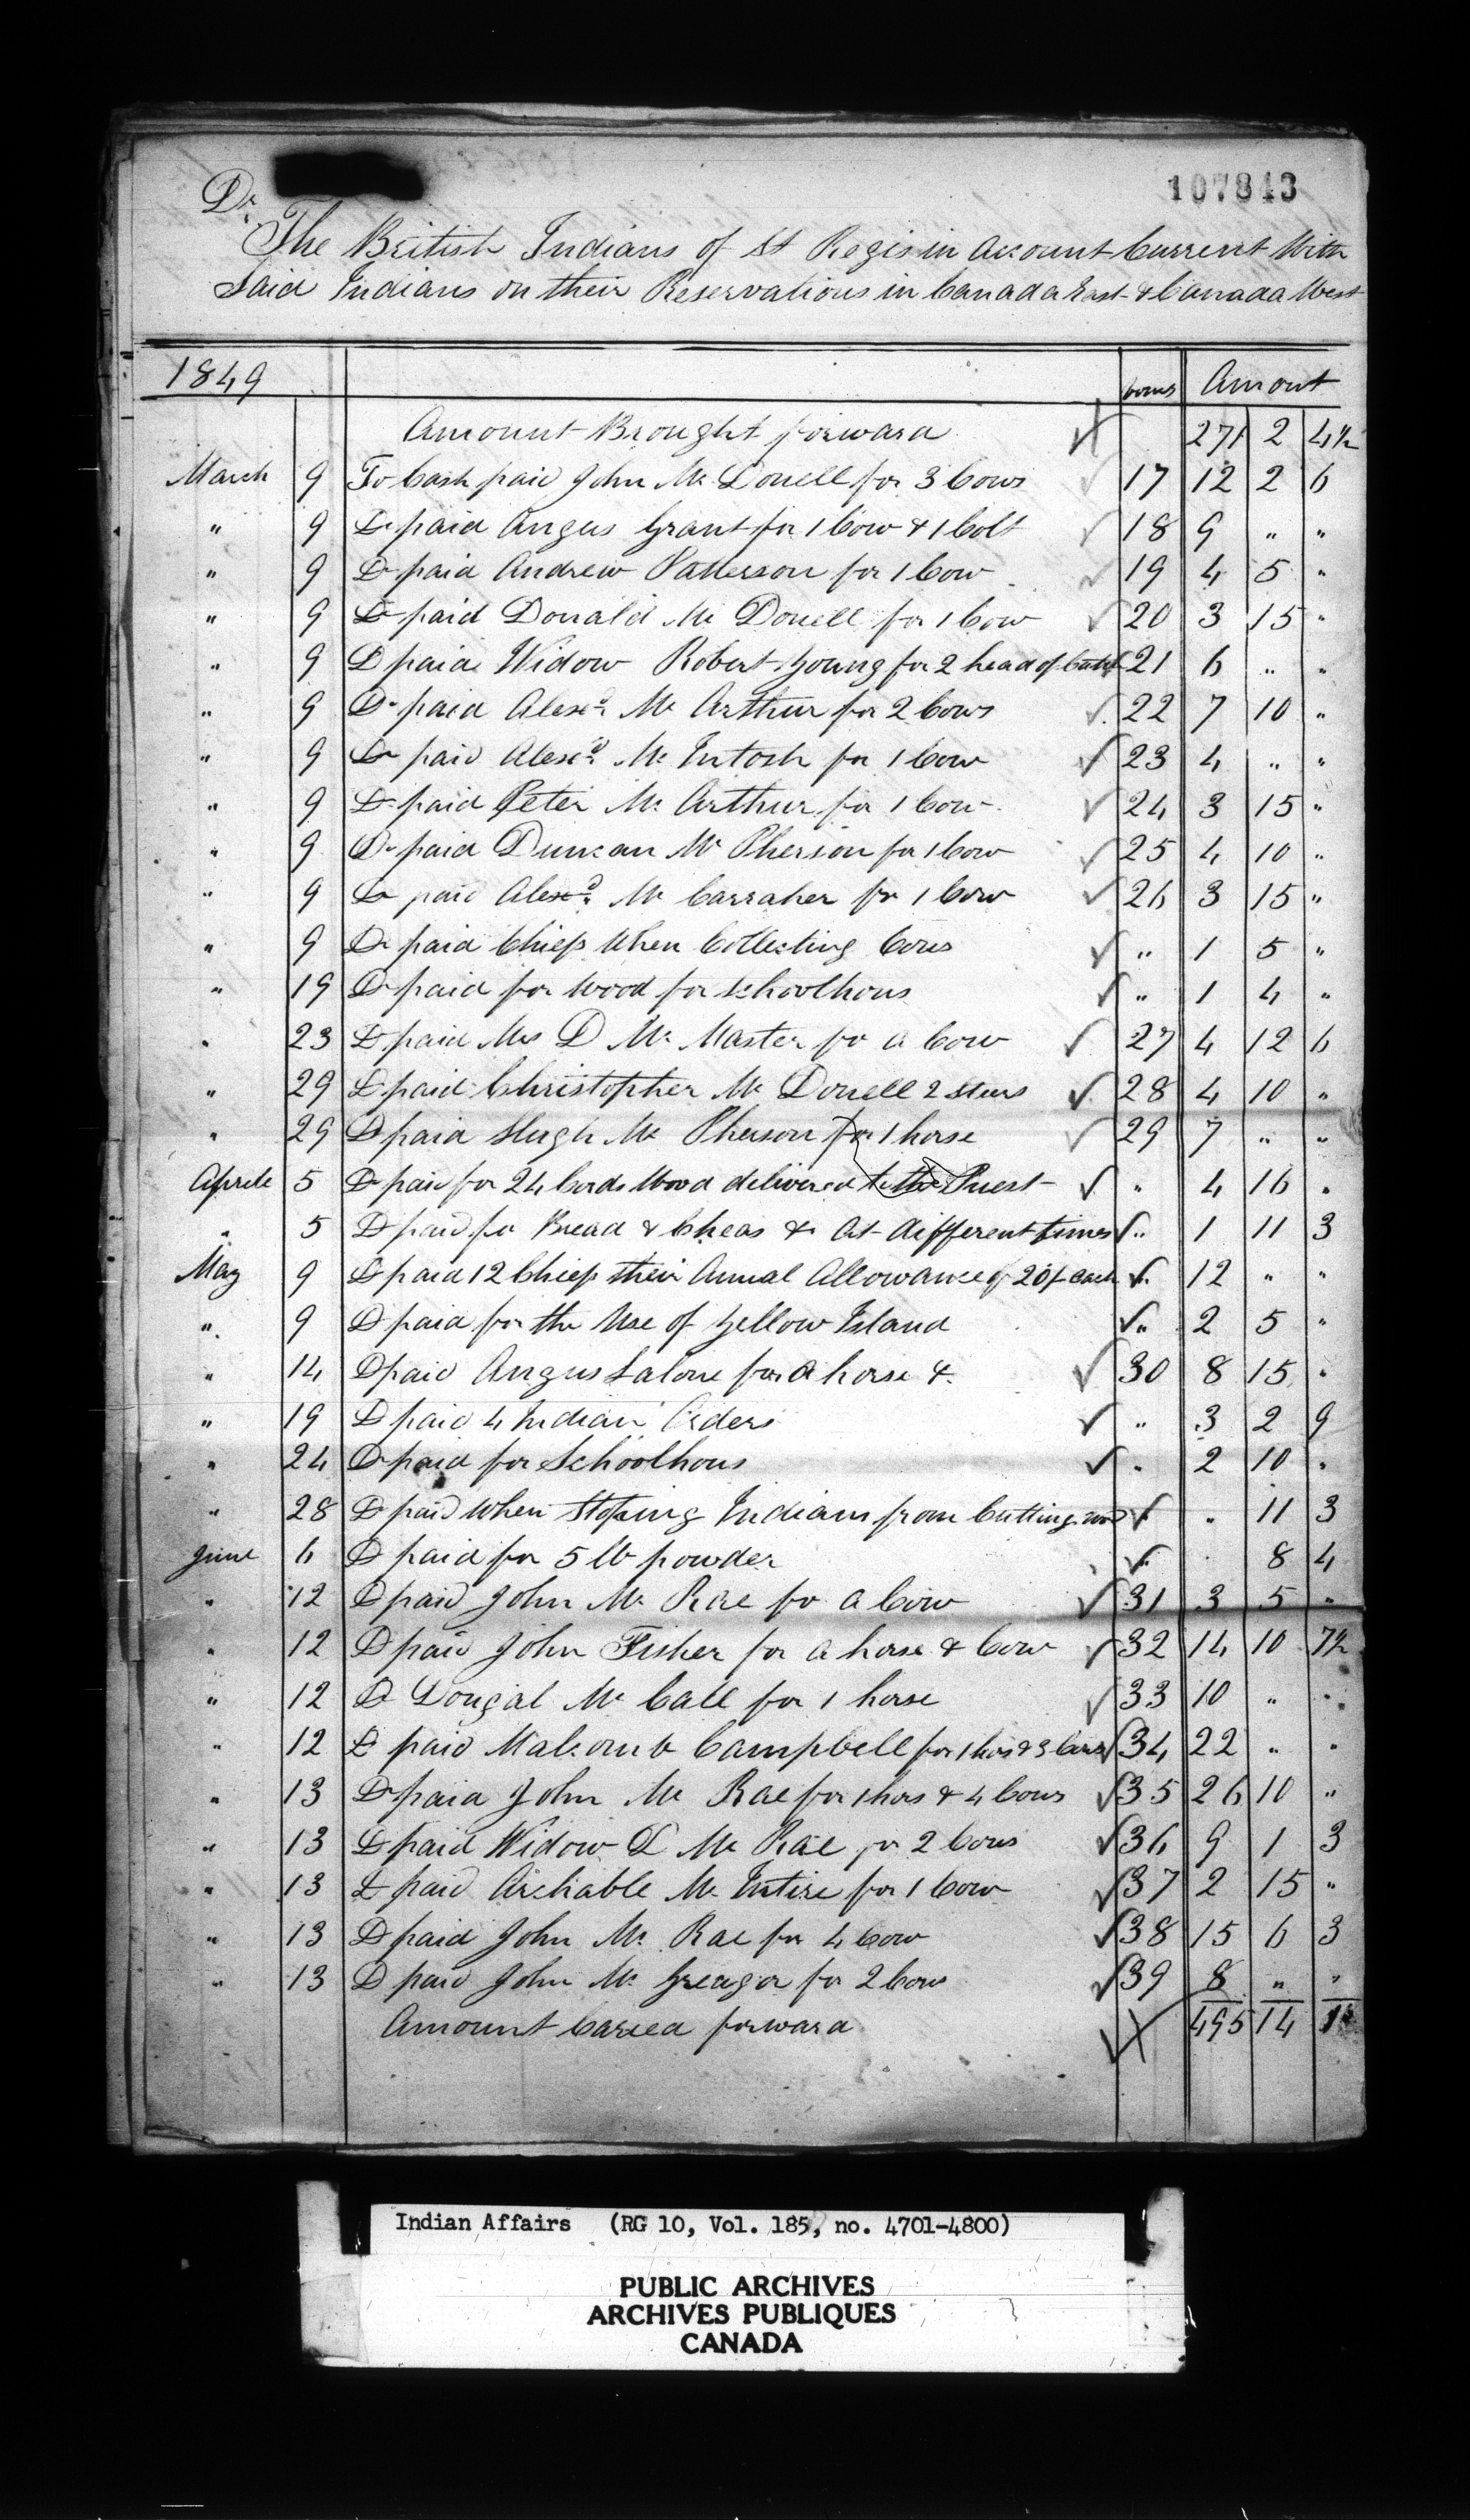 107843
Dr
The British Indians of St Regis in Account Current With
Said Indians on their Reservations in Canada East & Canada West
1849 Amount
Amount Brought forward 271 2 4½
March 9 To Cash paid John Mc Donell for 3 Cows 17 12 2 6
" 9 Do paid Angus Grant for 1 Cow & 1 Colt 18 9 " "
" 9 Do paid Andrew Patterson for 1 Cow 19 4 5 "
" 9 Do paid Donald Mc Donell for 1 Cow 20 3 15 "
" 9 Do paid Widow Robert Young for 2 head of Cattel 21 6 " "
" 9 Do paid Alexdr Mc Arthur for 2 Cows 22 7 10 "
" 9 Do paid Alexdr Mc Intosh for 1 Cow 23 4 " "
" 9 Do paid Peter Mc Arthur for 1 Cow 24 3 15 "
" 9 Do paid Duncan Mc Pherson for 1 Cow 25 4 10 "
" 9 Do paid Alexdr Mc Carraher for 1 Cow 26 3 15 "
" 9 Do paid Chiefs When Collecting Cows " 1 5 "
" 19 Do paid for Wood for Schoolhous " 1 4 "
" 23 Do paid Mrs D Mc Master for a Cow 27 4 12 6
" 29 Do paid Christopher Mc Donell 2 Steers 28 4 10 "
" 29 Do paid Hugh Mc Pherson for 1 horse 29 7 " "
Aprele 5 Do paid for 24 Cords Wood delivered to the Priest " 4 16 "
" 5 Do paid for Bread & Cheas & At different times " 1 11 3
May 9 Do paid 12 Chiefs their Annal Allowance of 20/- each " 12 " "
" 9 Do paid for the Use of Yellow Island " 2 5 "
" 14 Do paid Angus Lalone for a horse & 30 8 15 "
" 19 Do paid 4 Indian Orders " 3 2 9
" 24 Do paid for Schoolhous " 2 10 "
" 28 Do paid When Stoping Indians from Cutting wood " 11 3
June 6 Do paid for 5 lb powder " 8 4
" 12 Do paid John Mc Rae for a Cow 31 3 5 "
" 12 Do paid John Fisher for a horse & Cow 32 14 10 7½
" 12 Do Dougal Mc Call for 1 horse 33 10 " "
" 12 Do paid Malcomb Campbell for 1 hors & 3 Cows 34 22 " "
" 13 Do paid John Mc Rae for 1 hors & 4 Cows 35 26 10 "
" 13 Do paid Widow D Mc Rae for 2 Cows 36 9 1 3
" 13 Do paid Archable Mc Intire for 1 Cow 37 2 15 "
" 13 Do paid John Mc Rae for 4 Cow 38 15 6 3
" 13 Do paid John Mc Greagor for 2 Cows 39 8 " "
Amount Caried forward 495 14
Indian Affairs (RG 10, Vol. 185, no. 4701-4800)
PUBLIC ARCHIVES
ARCHIVES PUBLIQUES
CANADA